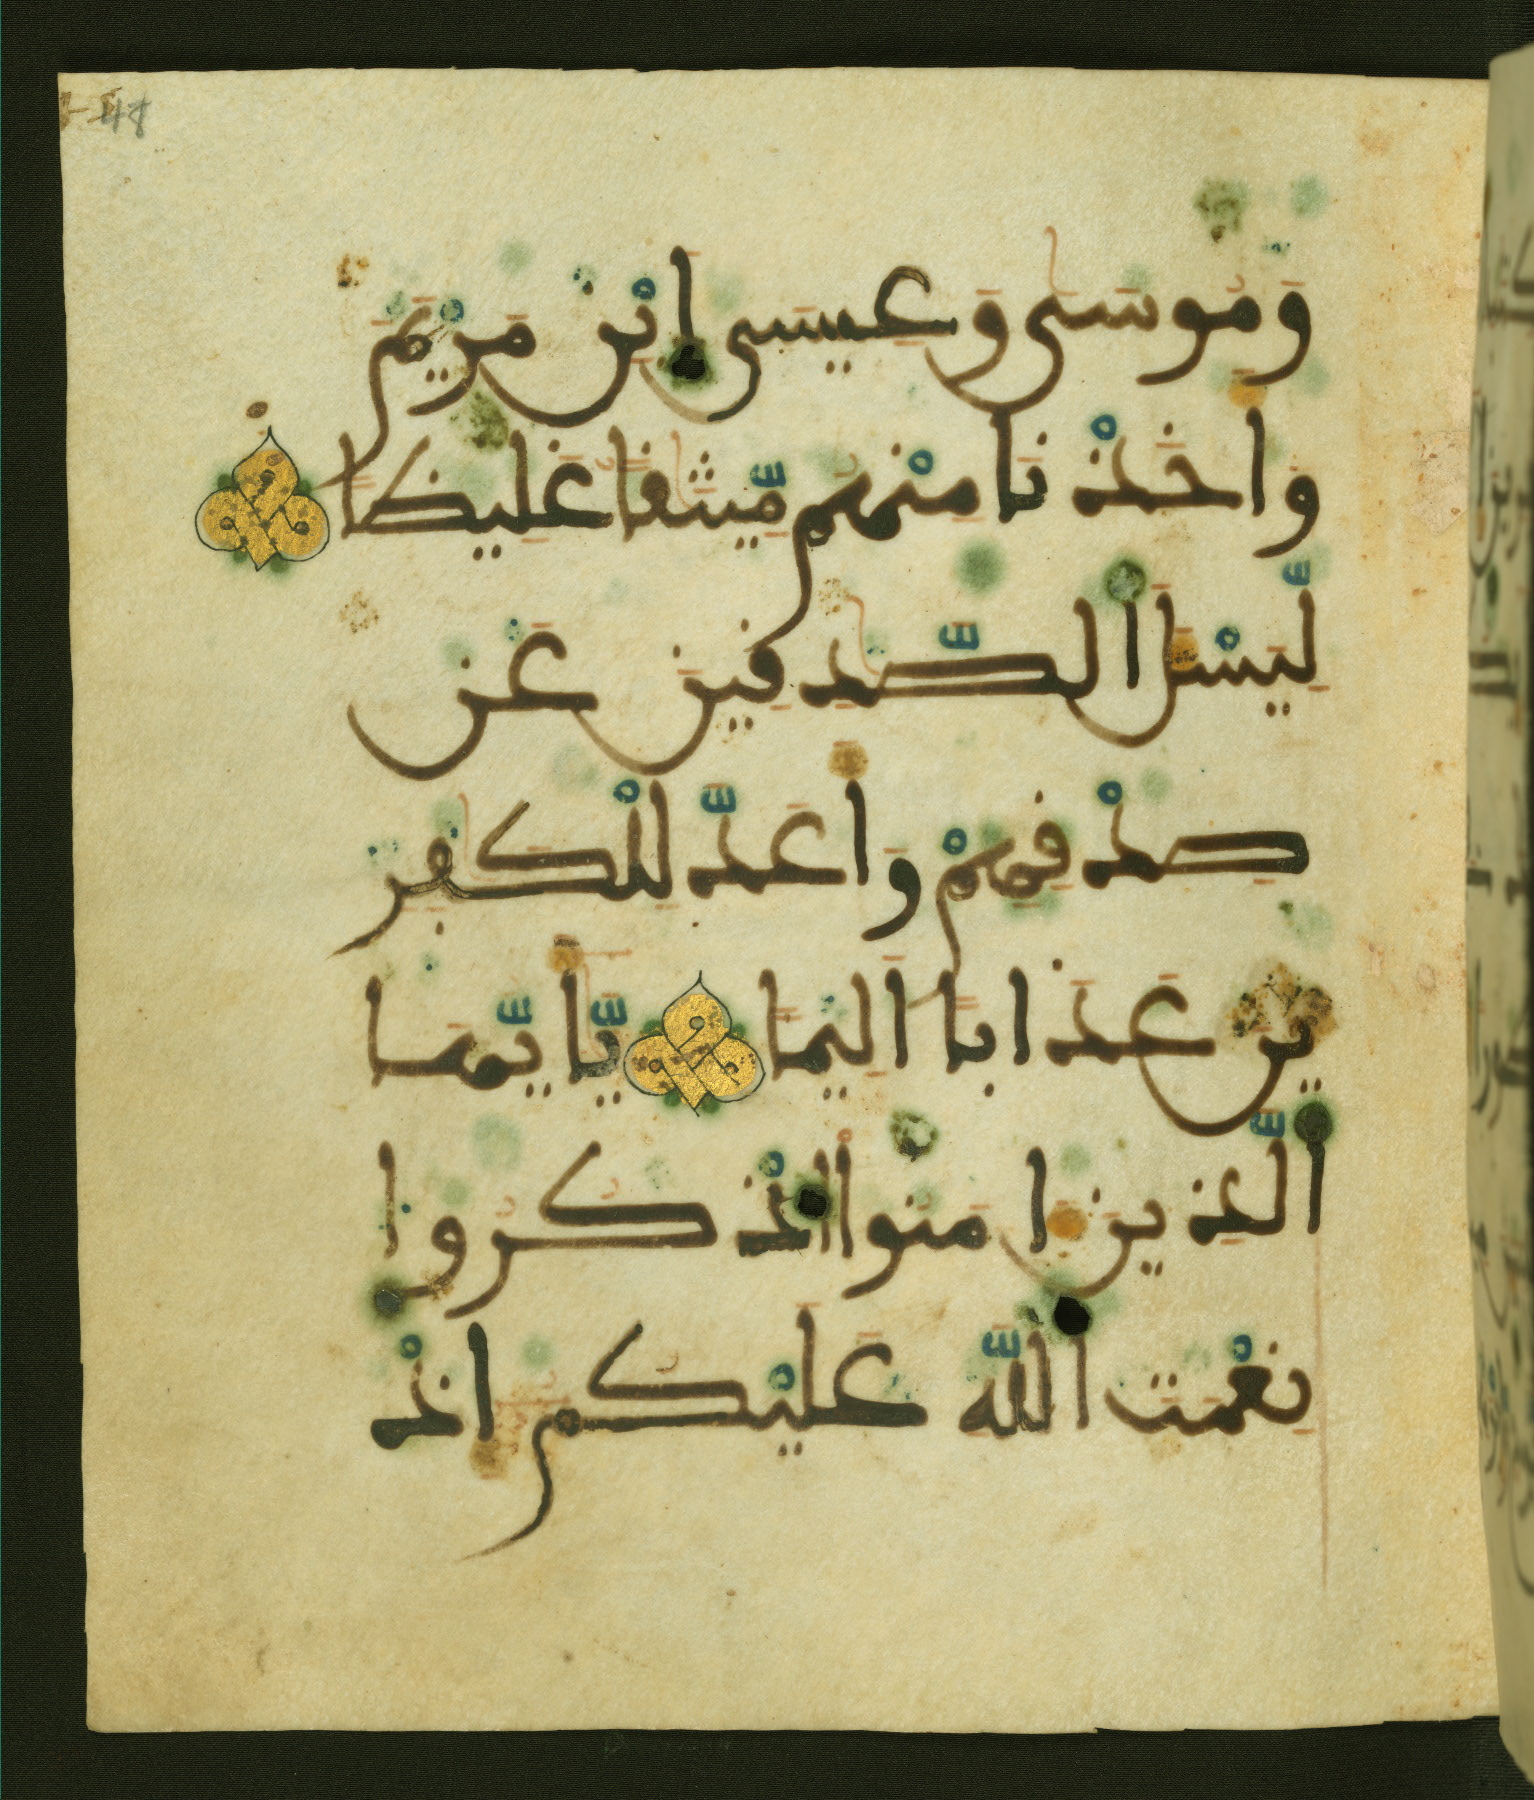 48
وَمُوسَى وَعِيسَى ابْنِ مَرْيَمَ
وَأَخَذْنَا مِنْهُم مِّيثَٰقًا غَلِيظًا
لِّيَسْـَٔلَ الصَّٰدِقِينَ عَن
صِدْقِهِمْ وَأَعَدَّ لِلْكَٰفِرِ
ينَ عَذَابًا أَلِيمًا يَّٰأَيُّهَا
الَّذِينَ ءَامَنُوا اذْكُرُوا
نِعْمَتَ اللَّهِ عَلَيْكُمْ إِذْ